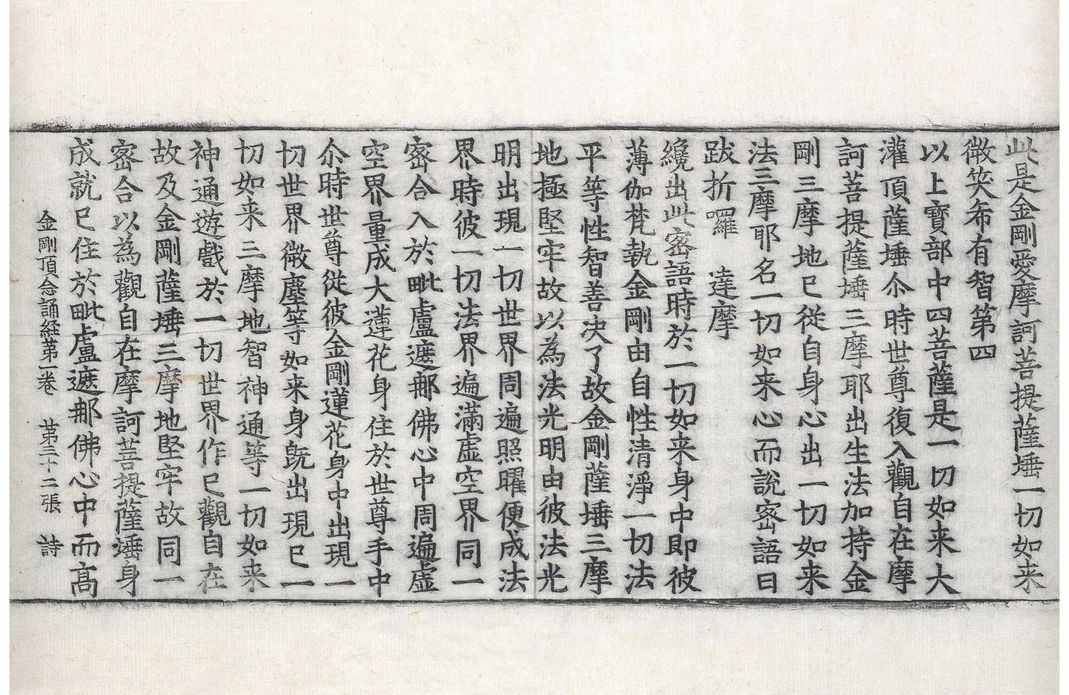 此是金剛愛摩訶菩提薩埵一切如来
微笑希有智第四
以上寶部中四菩薩是一切如来大
灌頂薩埵尒時世尊復入觀自在摩
訶菩提薩埵三摩耶出生法加持金
剛三摩地已從自身心出一切如来
法三摩耶名一切如来心而說密語曰
跋折囉　達摩
纔出此密語時於一切如来身中即彼
薄伽梵執金剛由自性清淨一切法
平等性智善決了故金剛薩埵三摩
地極堅牢故以為法光明由彼法光
明出現一切世界周遍照曜便成法
界時彼一切法界遍滿虛空界同一
密合入於毗盧遮那佛心中周遍虛
空界量成大蓮花身住於世尊手中
尒時世尊從彼金剛蓮花身中出現一
切世界微塵等如来身旣出現已一
切如来三摩地智神通等一切如来
神通遊戲於一切世界作已觀自在
故及金剛薩埵三摩地堅牢故同一
密合以為觀自在摩訶菩提薩埵身
成就已住於毗盧遮那佛心中而高
金剛頂念誦経第一卷　苐三十二張　詩